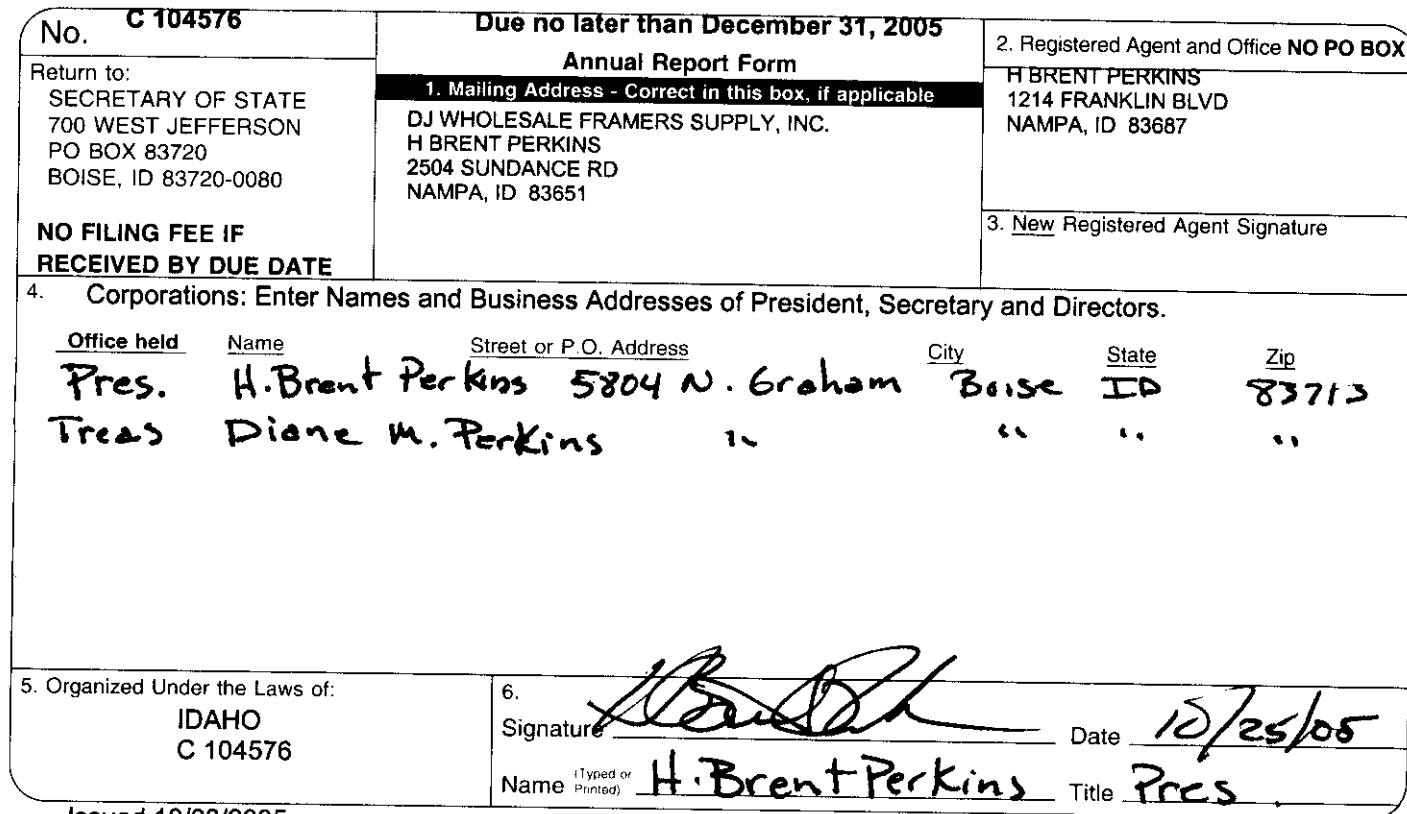 No. C 104576
Return to:
SECRETARY OF STATE
700 WEST JEFFERSON
PO BOX 83720
BOISE, ID 83720-0080
NO FILING FEE IF
RECEIVED BY DUE DATE
Due no later than December 31, 2005
Annual Report Form
1. Mailing Address - Correct in this box, if applicable
DJ WHOLESALE FRAMERS SUPPLY, INC.
H BRENT PERKINS
2504 SUNDANCE RD
NAMPA, ID 83651
2. Registered Agent and Office NO PO BOX
H BRENT PERKINS
1214 FRANKLIN BLVD
NAMPA, ID 83687
3. New Registered Agent Signature
4. Corporations: Enter Names and Business Addresses of President, Secretary and Directors.
Office held Name Street or P.O. Address City State Zip
Pres. H. Brent Perkins 5804 N. Graham Boise ID 83713
Treas Diane M. Perkins " " " "
5. Organized Under the Laws of:
IDAHO
C 104576
6.
Signature Date 10/25/05
Name (Typed or Printed) H. Brent Perkins Title Pres.